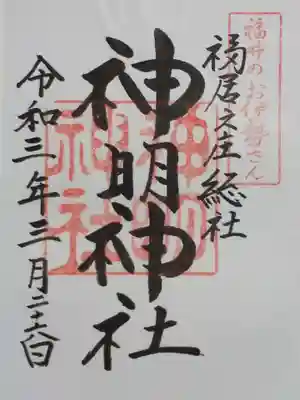 福井のお伊勢さん
福居之庄総社
神明神社
神明
神社
令和三年三月二十六日